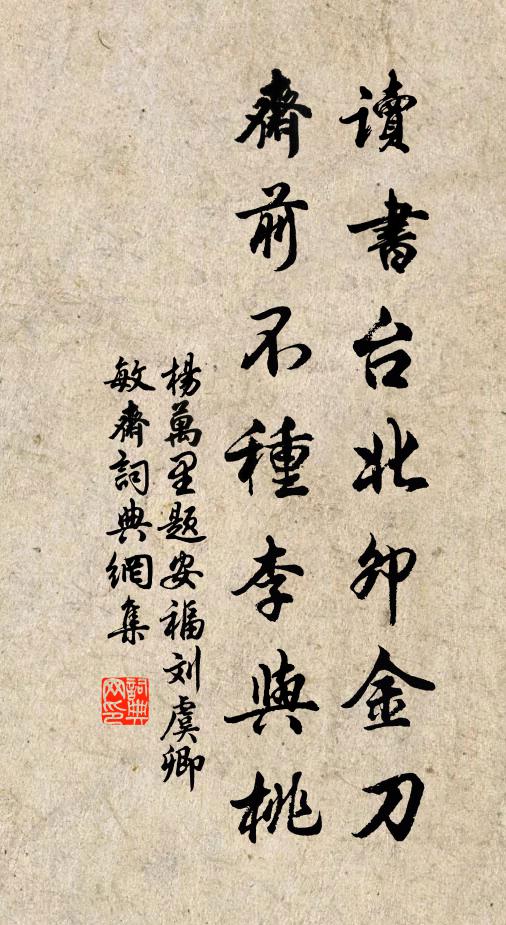 讀書台北卯金刀
齋前不種李與桃
楊萬里题安福刘虞卿
敏齋詞典網集
詞典
网印